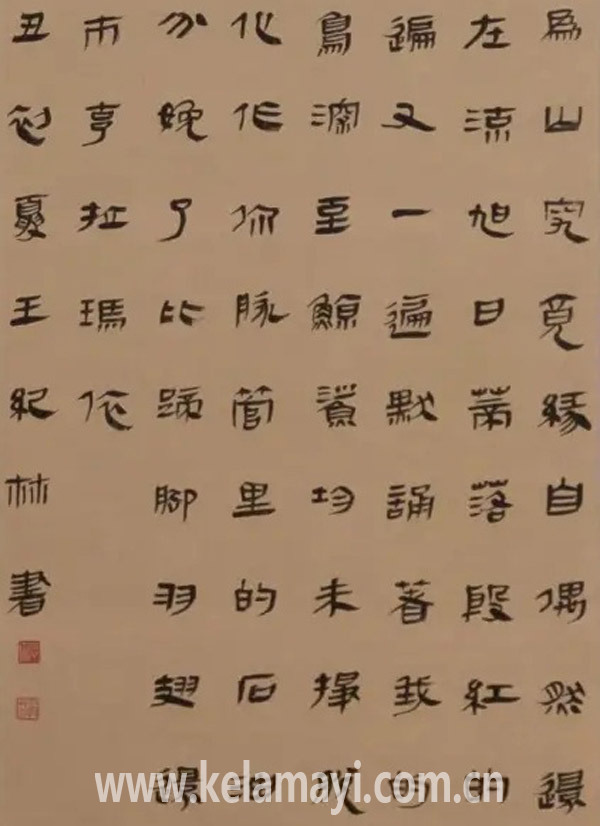 山究覓緣自偶然還
左旭日落段紅的
遍又一遍默誦著我的
鳥深至鯨鯊均未
化作你脉管里的石油
晚了比蹄腳羽翅還
拉瑪依
丑初夏王紀林書
www.kelamayi.com.cn